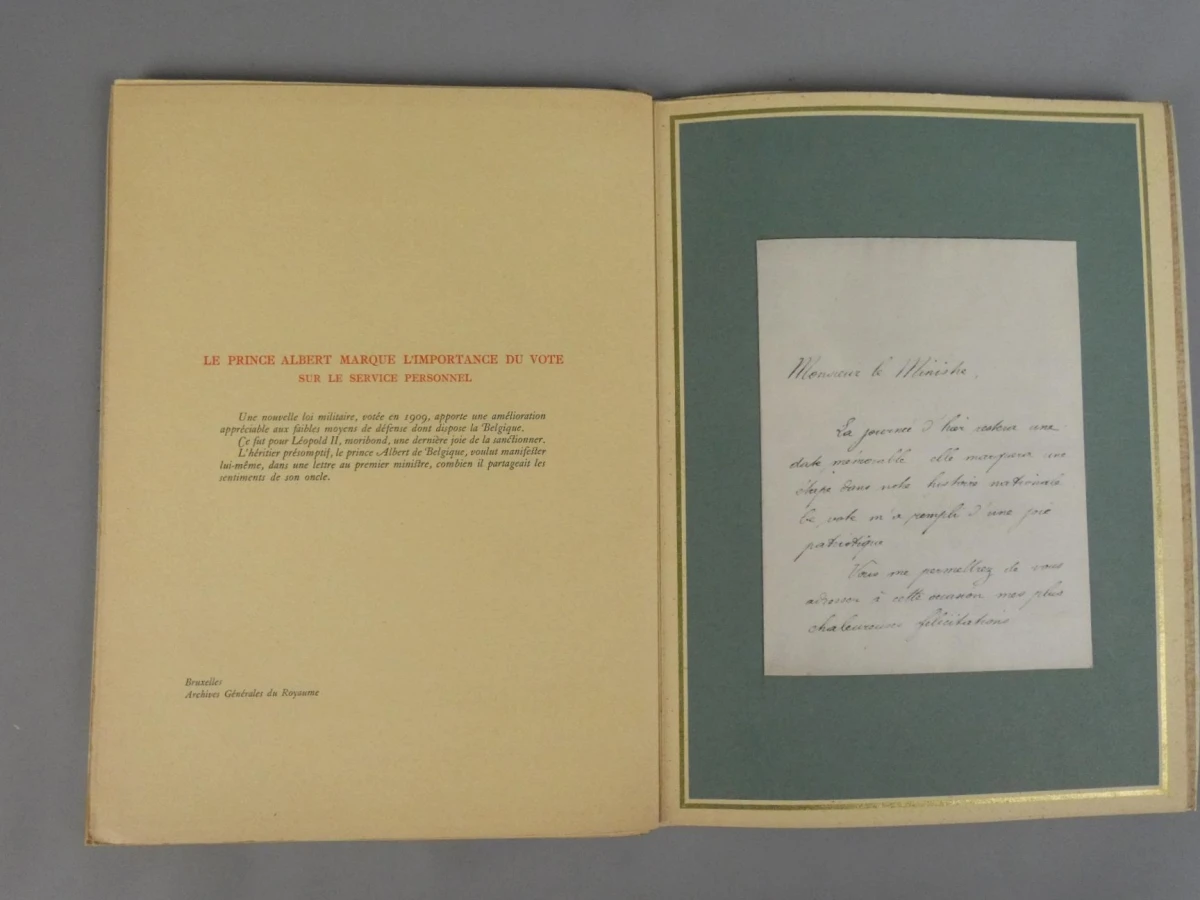 LE PRINCE ALBERT MARQUE L'IMPORTANCE DU VOTE
SUR LE SERVICE PERSONNEL
Une nouvelle loi militaire, votée en 1909, apporte une amélioration
appréciable aux faibles moyens de défense dont dispose la Belgique.
Ce fut pour Léopold II, moribond, une dernière joie de la sanctionner.
L'héritier présomptif, le prince Albert de Belgique, voulut manifester
lui-même, dans une lettre au premier ministre, combien il partageait les
sentiments de son oncle.
Bruxelles
Archives Générales du Royaume
Monsieur le Ministre,
La journée d'hier restera une
date mémorable elle marquera une
étape dans notre histoire nationale
Le vote m'a rempli d'une joie
patriotique
Vous me permettrez de vous
adresser à cette occasion mes plus
chaleureuses félicitations